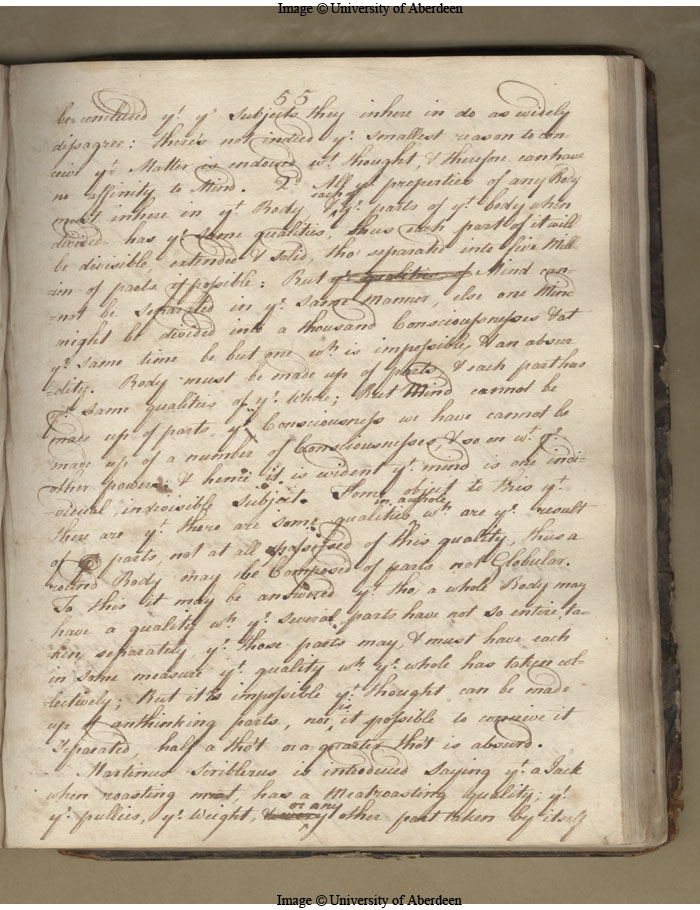 Image © University of Aberdeen
55
be concluded yt. ye. subjects they inhere in do as widely
disagree: there's not indeed ye. smallest reason to con-
ceive yt. Matter is endowed wt. thought, & therefore can have
no affinity to Mind. 2o. All ye. properties of any Body
must inhere in yt. Body each of ye. parts of yt. body when
divided has ye. same qualities, thus each part of it will
be divisible, extended & solid, tho' separated into five Mill-
-ion of parts if possible: But ye. qualities of Mind can-
-not be separated in ye. same manner, else one Mind
might be divided into a thousand Consciousnesses & at
ye. same time be but one wh. is impossible, & an absur
-dity. Body must be made up of parts & each part has
ye. same qualities of ye. whole; But Mind cannot be
made up of parts, ye. Consciousness we have cannot be
made up of a number of Consciousnesses, & so on wt. ye.
other powers; & hence it is evident yt. mind is one indi-
-vidual, indivisible subject. Some object to this yt.
there are yt. there are some qualities in a whole wh. are ye. result
of parts, not at all possessed of this quality, thus a
round Body may be Composed of parts not Globular.
To this it may be answered yt. tho' a whole Body may
have a quality wh. ye. several parts have not so entire ta-
ken separately, yt. those parts may, & must have each
in some measure yt. quality wh. ye. whole has taken col-
lectively; But it is impossible yt. thought can be made
up of unthinking parts, nor is it possible to conceive it
separated, half a tho't or a quarter tho't is absurd.
Martinus Scriblerus is introduced saying yt. a Jack
when roasting meat, has a Meatroasting quality; yt.
ye. pullies, ye. weight, & every or any other part taken by itself
Image © University of Aberdeen